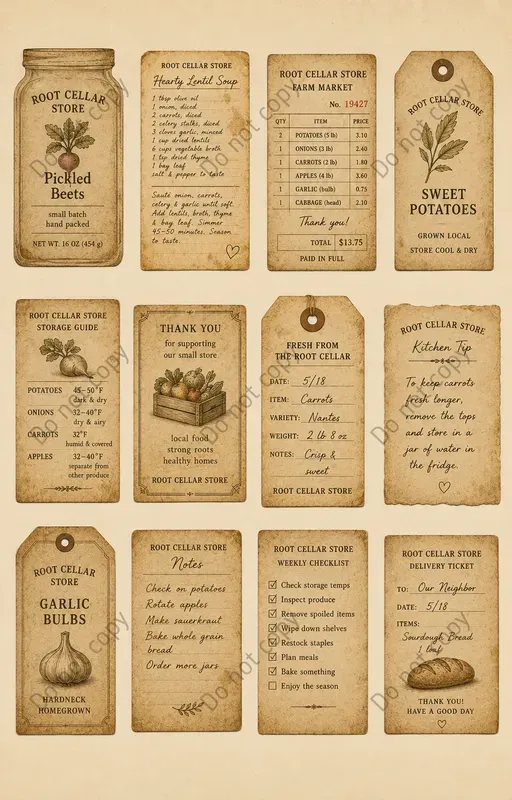 ROOT CELLAR
STORE
Pickled
Beets
small batch
hand packed
NET WT. 16 OZ (454 g)
ROOT CELLAR STORE
Hearty Lentil Soup
1 tbsp olive oil
1 onion, diced
2 carrots, diced
2 celery stalks, diced
3 cloves garlic, minced
1 cup dried lentils
6 cups vegetable broth
1 tsp dried thyme
1 bay leaf
salt & pepper to taste
Sauté onion, carrots,
celery & garlic until soft.
Add lentils, broth, thyme
& bay leaf. Simmer
45-50 minutes. Season
to taste.
ROOT CELLAR STORE
FARM MARKET
No. 19427
QTY ITEM PRICE
2 POTATOES (5 lb) 3.10
1 ONIONS (3 lb) 2.40
1 CARROTS (2 lb) 1.80
1 APPLES (4 lb) 3.60
1 GARLIC (bulb) 0.75
1 CABBAGE (head) 2.10
Thank you!
TOTAL $13.75
PAID IN FULL
ROOT CELLAR STORE
SWEET
POTATOES
GROWN LOCAL
STORE COOL & DRY
ROOT CELLAR STORE
STORAGE GUIDE
POTATOES 45-50°F
dark & dry
ONIONS 32-40°F
dry & airy
CARROTS 32°F
humid & covered
APPLES 32-40°F
separate from
other produce
THANK YOU
for supporting
our small store
local food
strong roots
healthy homes
ROOT CELLAR STORE
FRESH FROM
THE ROOT CELLAR
DATE: 5/18
ITEM: Carrots
VARIETY: Nantes
WEIGHT: 2 lb 8 oz
NOTES: Crisp &
sweet
ROOT CELLAR STORE
ROOT CELLAR STORE
Kitchen Tip
To keep carrots
fresh longer,
remove the tops
and store in a
jar of water in
the fridge.
ROOT CELLAR
STORE
GARLIC
BULBS
HARDNECK
HOMEGROWN
ROOT CELLAR STORE
Notes
Check on potatoes
Rotate apples
Make sauerkraut
Bake whole grain
bread
Order more jars
ROOT CELLAR STORE
WEEKLY CHECKLIST
Check storage temps
Inspect produce
Remove spoiled items
Wipe down shelves
Restock staples
Plan meals
Bake something
Enjoy the season
ROOT CELLAR STORE
DELIVERY TICKET
TO: Our Neighbor
DATE: 5/18
ITEMS:
Sourdough Bread
1 loaf
THANK YOU!
HAVE A GOOD DAY
Do not copy
Do not copy
Do not copy
Do not copy
Do not copy
Do not copy
Do not copy
Do not copy
Do not copy